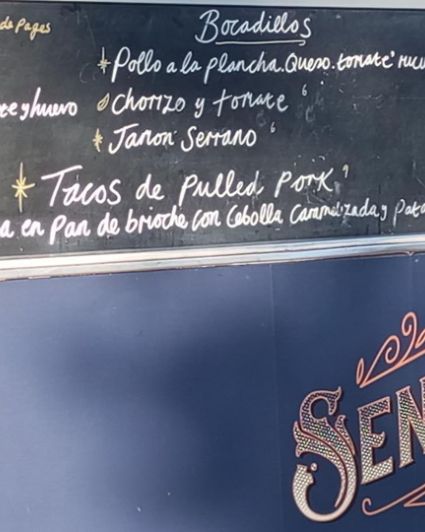 de Pages
Bocadillos
Pollo a la plancha. Queso. tomate
y huevo
Chorizo y tomate 6
Jamon Serrano 6
Tacos de Pulled Pork 9
a en Pan de brioche con Cebolla Caramelizada y Pata
SEN